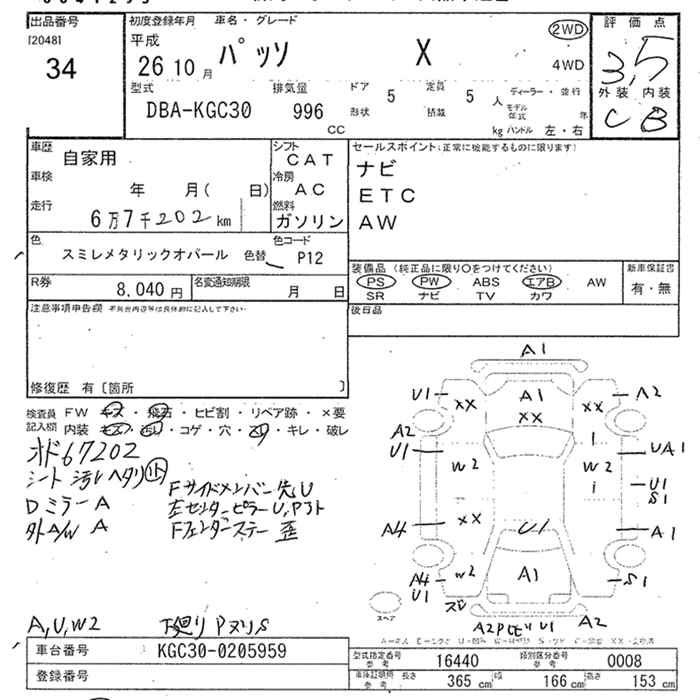 出品番号 初度登録年月 車名・グレード 評価点
[2048]
34
平成 26 10 月 パッソ X 2WD 4WD 3,5
型式 排気量 ドア 定員 ディーラー・並行 外装 内装
DBA-KGC30 996 CC 形状 5 積載 5 人 モデル年式 年 C B
kg ハンドル 左・右
車歴 自家用 シフト CAT セールスポイント(正常に機能するものに限ります)
車検 年 月( 日) 冷房 AC ナビ
走行 6万7千202km 燃料 ガソリン ETC
AW
色 スミレメタリックオパール 色替 色コード P12
装備品 (純正品に限り○をつけてください) 新車保証書
PS PW ABS エアB AW 有・無
SR ナビ TV カワ
R券 8,040 円 名変通知期限 月 日
後日品
注意事項申告欄
修復歴 有 [箇所 ]
検査員記入欄 FW キズ・飛石・ヒビ割・リペア跡・×要
内装 キズ・汚レ・コゲ・穴・スリ・キレ・破レ
オド67202
シート 汚レ ヘタリ
Dミラー A
外A/W A
Fサイドメンバー先U
左センターピラーU,Pアト
Fフェンダーステー 歪
A,U,W2 下廻りPヌリ,S
A1
U1 XX A1 XX XX A2
A2 U1 W2 W2 UA1
U1 S1
A4 XX U1 A1
A4 U1 W2 A1 S1
スペア A2 U1 A2
車台番号 KGC30-0205959
登録番号
型式指定番号 参考 16440 類別区分番号 参考 0008
車検証類柄 参考 長さ 365 cm 幅 166 cm 高さ 153 cm